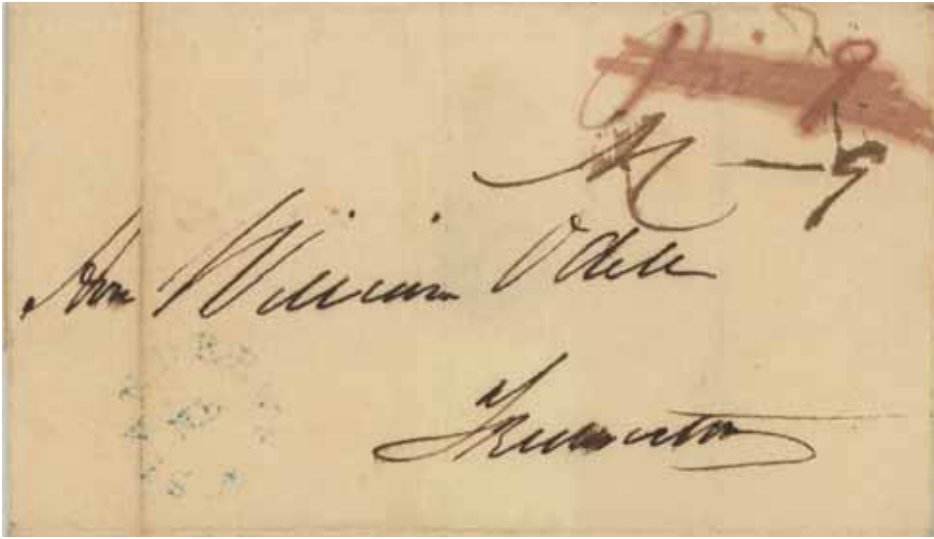 Paid 9
Hon William Odell
Fredericton